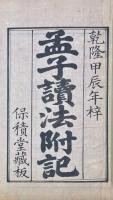 乾隆甲辰年梓
孟子讀法附記
保積堂藏板